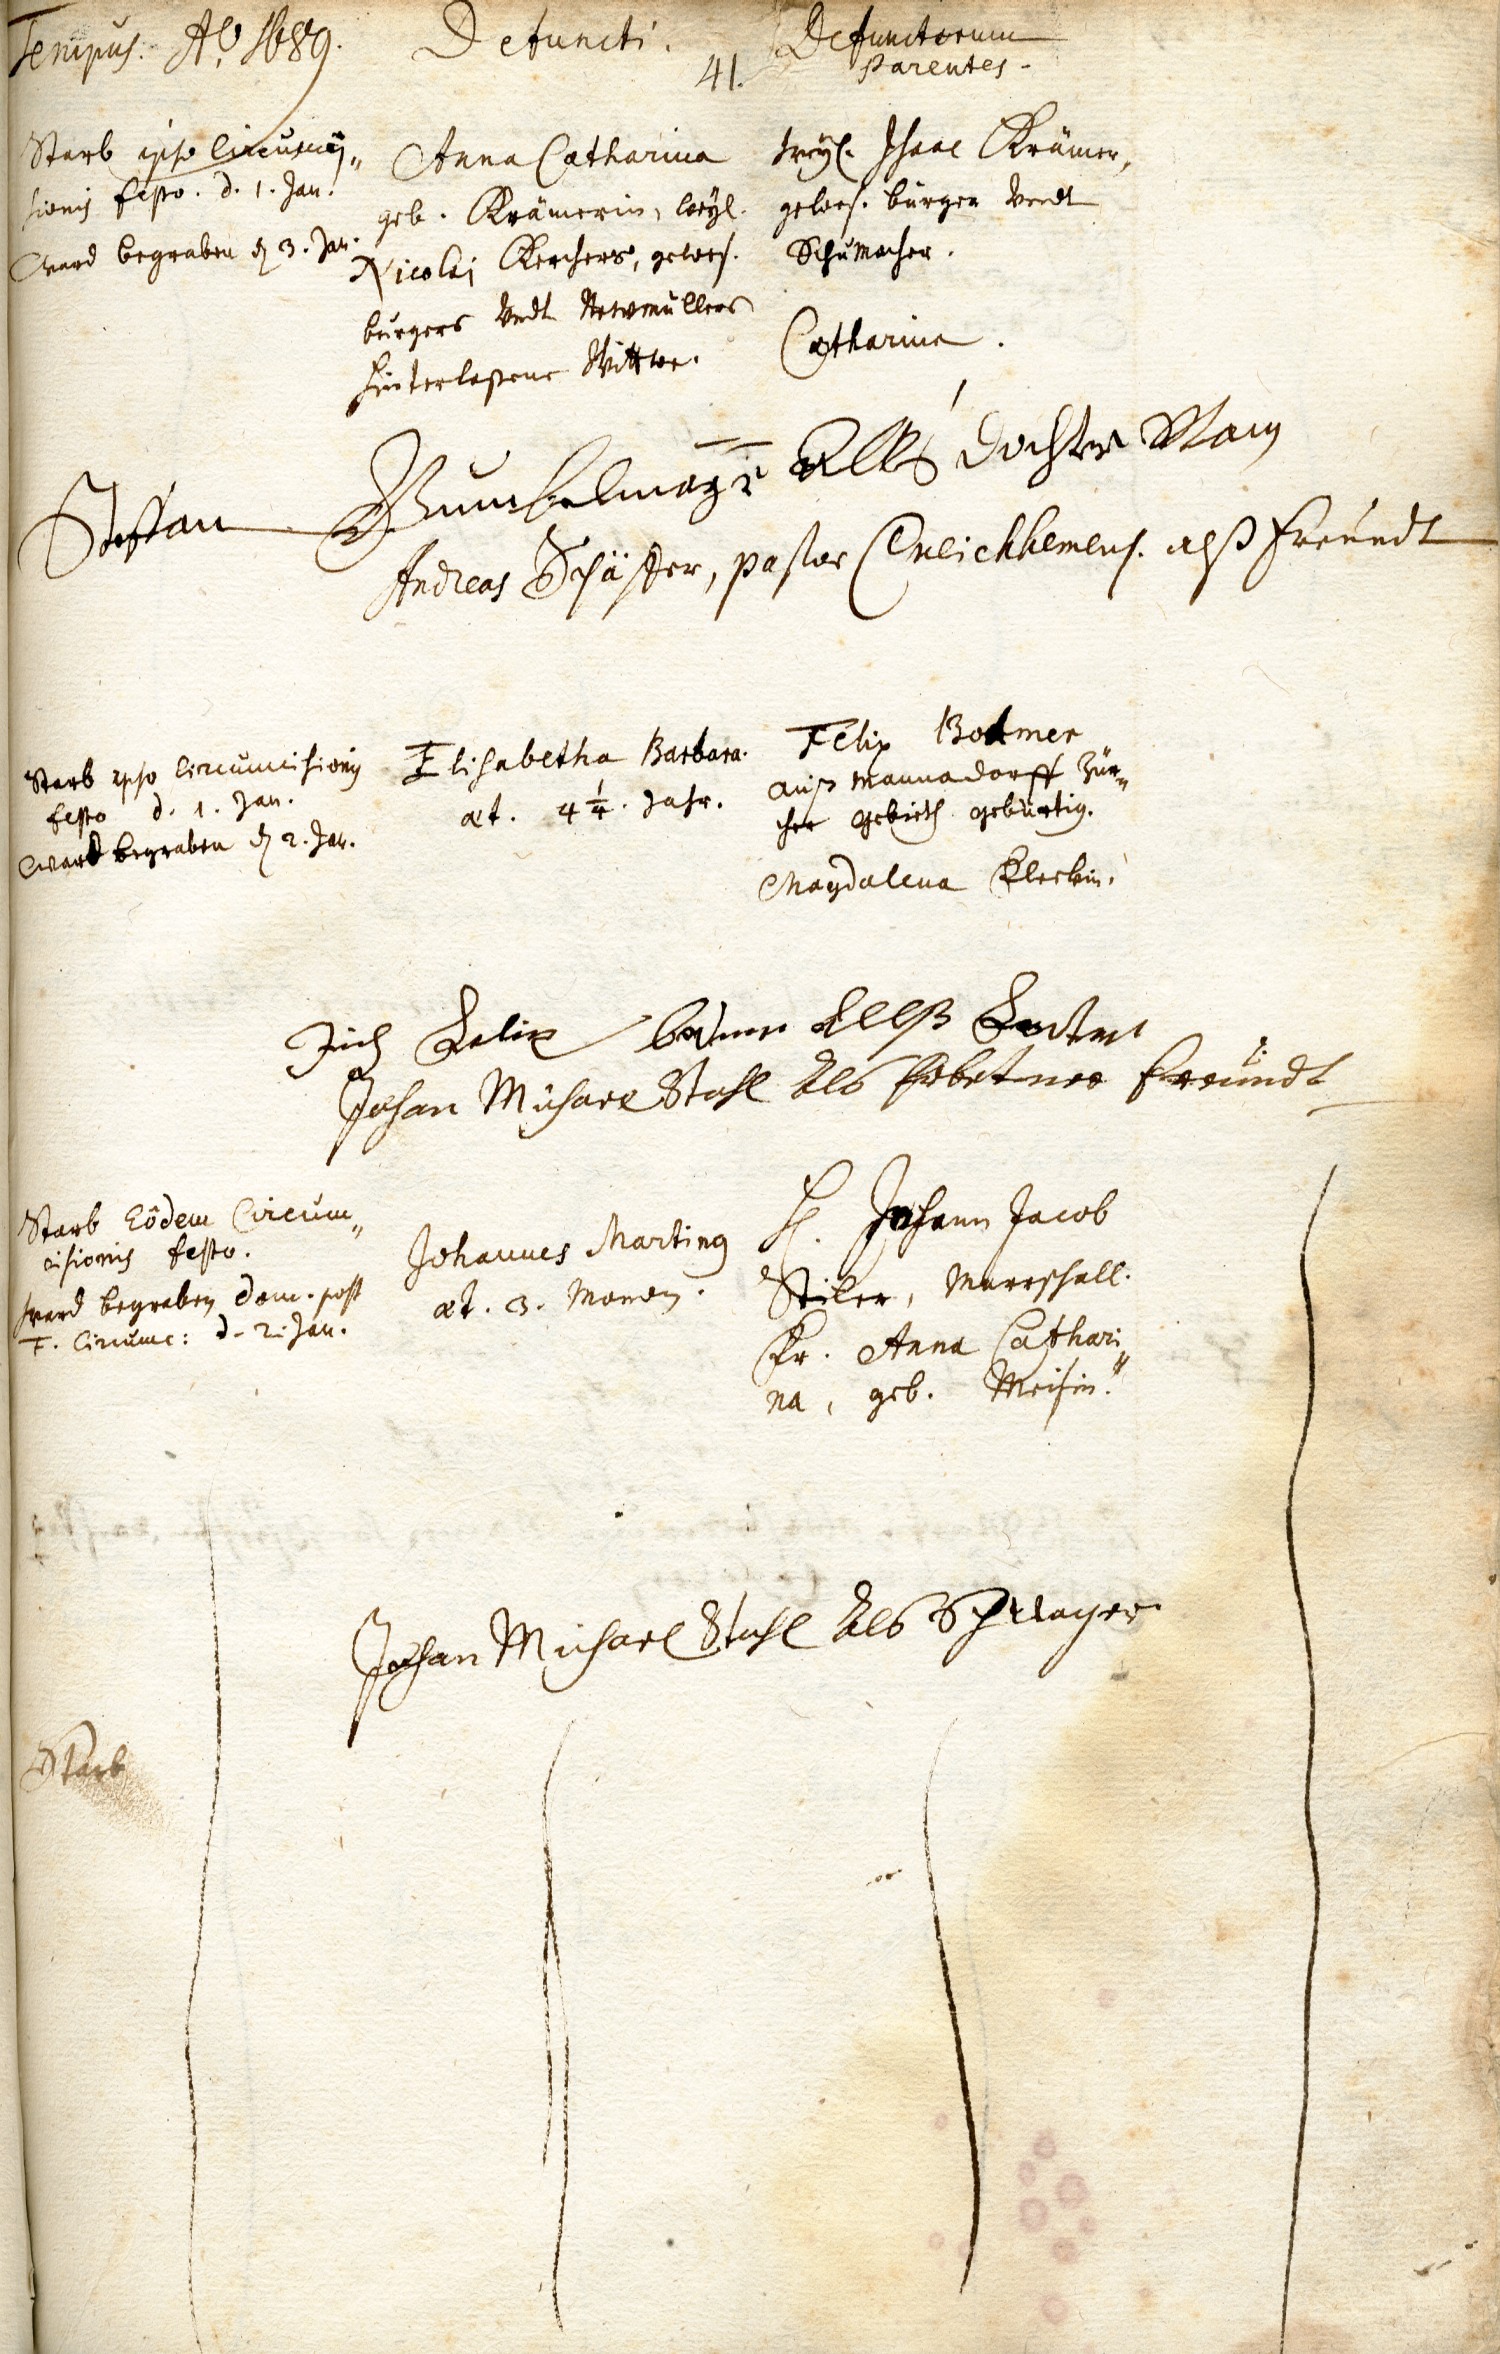 Tempus. Aº. 1689.
Defuncti.
Defunctorum
Parentes.
41.
Starb ipso Circumci„
sionis festo. d. 1. Jan.
Ward begraben d. 3. Jan.
Anna Catharina
geb. Krämerin, weyl.
Nicolai Kerchers, gewes.
burgers undt
hinterlaßene Wittwe.
weyl. Isaac Krämer,
gewes. burger undt
Schumacher.
Catharina.
Steffan als dochter Man
Andreas Schäffer, pastor alß freundt
Starb ipso Circumcisionis
festo d. 1. Jan.
Ward begraben d. 2. Jan.
Elisabetha Barbara.
æt. 4 1/4. Jahr.
Felix Bodmer
auß Mannadorff Zür„
cher gebieth gebürtig.
Magdalena
Ich Felix bodmer Allß
Johan Michael Stahl Als Erbetner freündt
Starb eôdem Circum„
cisionis festo.
ward begraben dom. post
F. Circumc: d. 2. Jan.
Johannes Martinus
æt. 3. Monat.
H. Johann Jacob
Stiler, Marschall.
Fr. Anna Cathari„
na, geb. Meisin.
Johan Michael Stahl Als Schwager
Starb